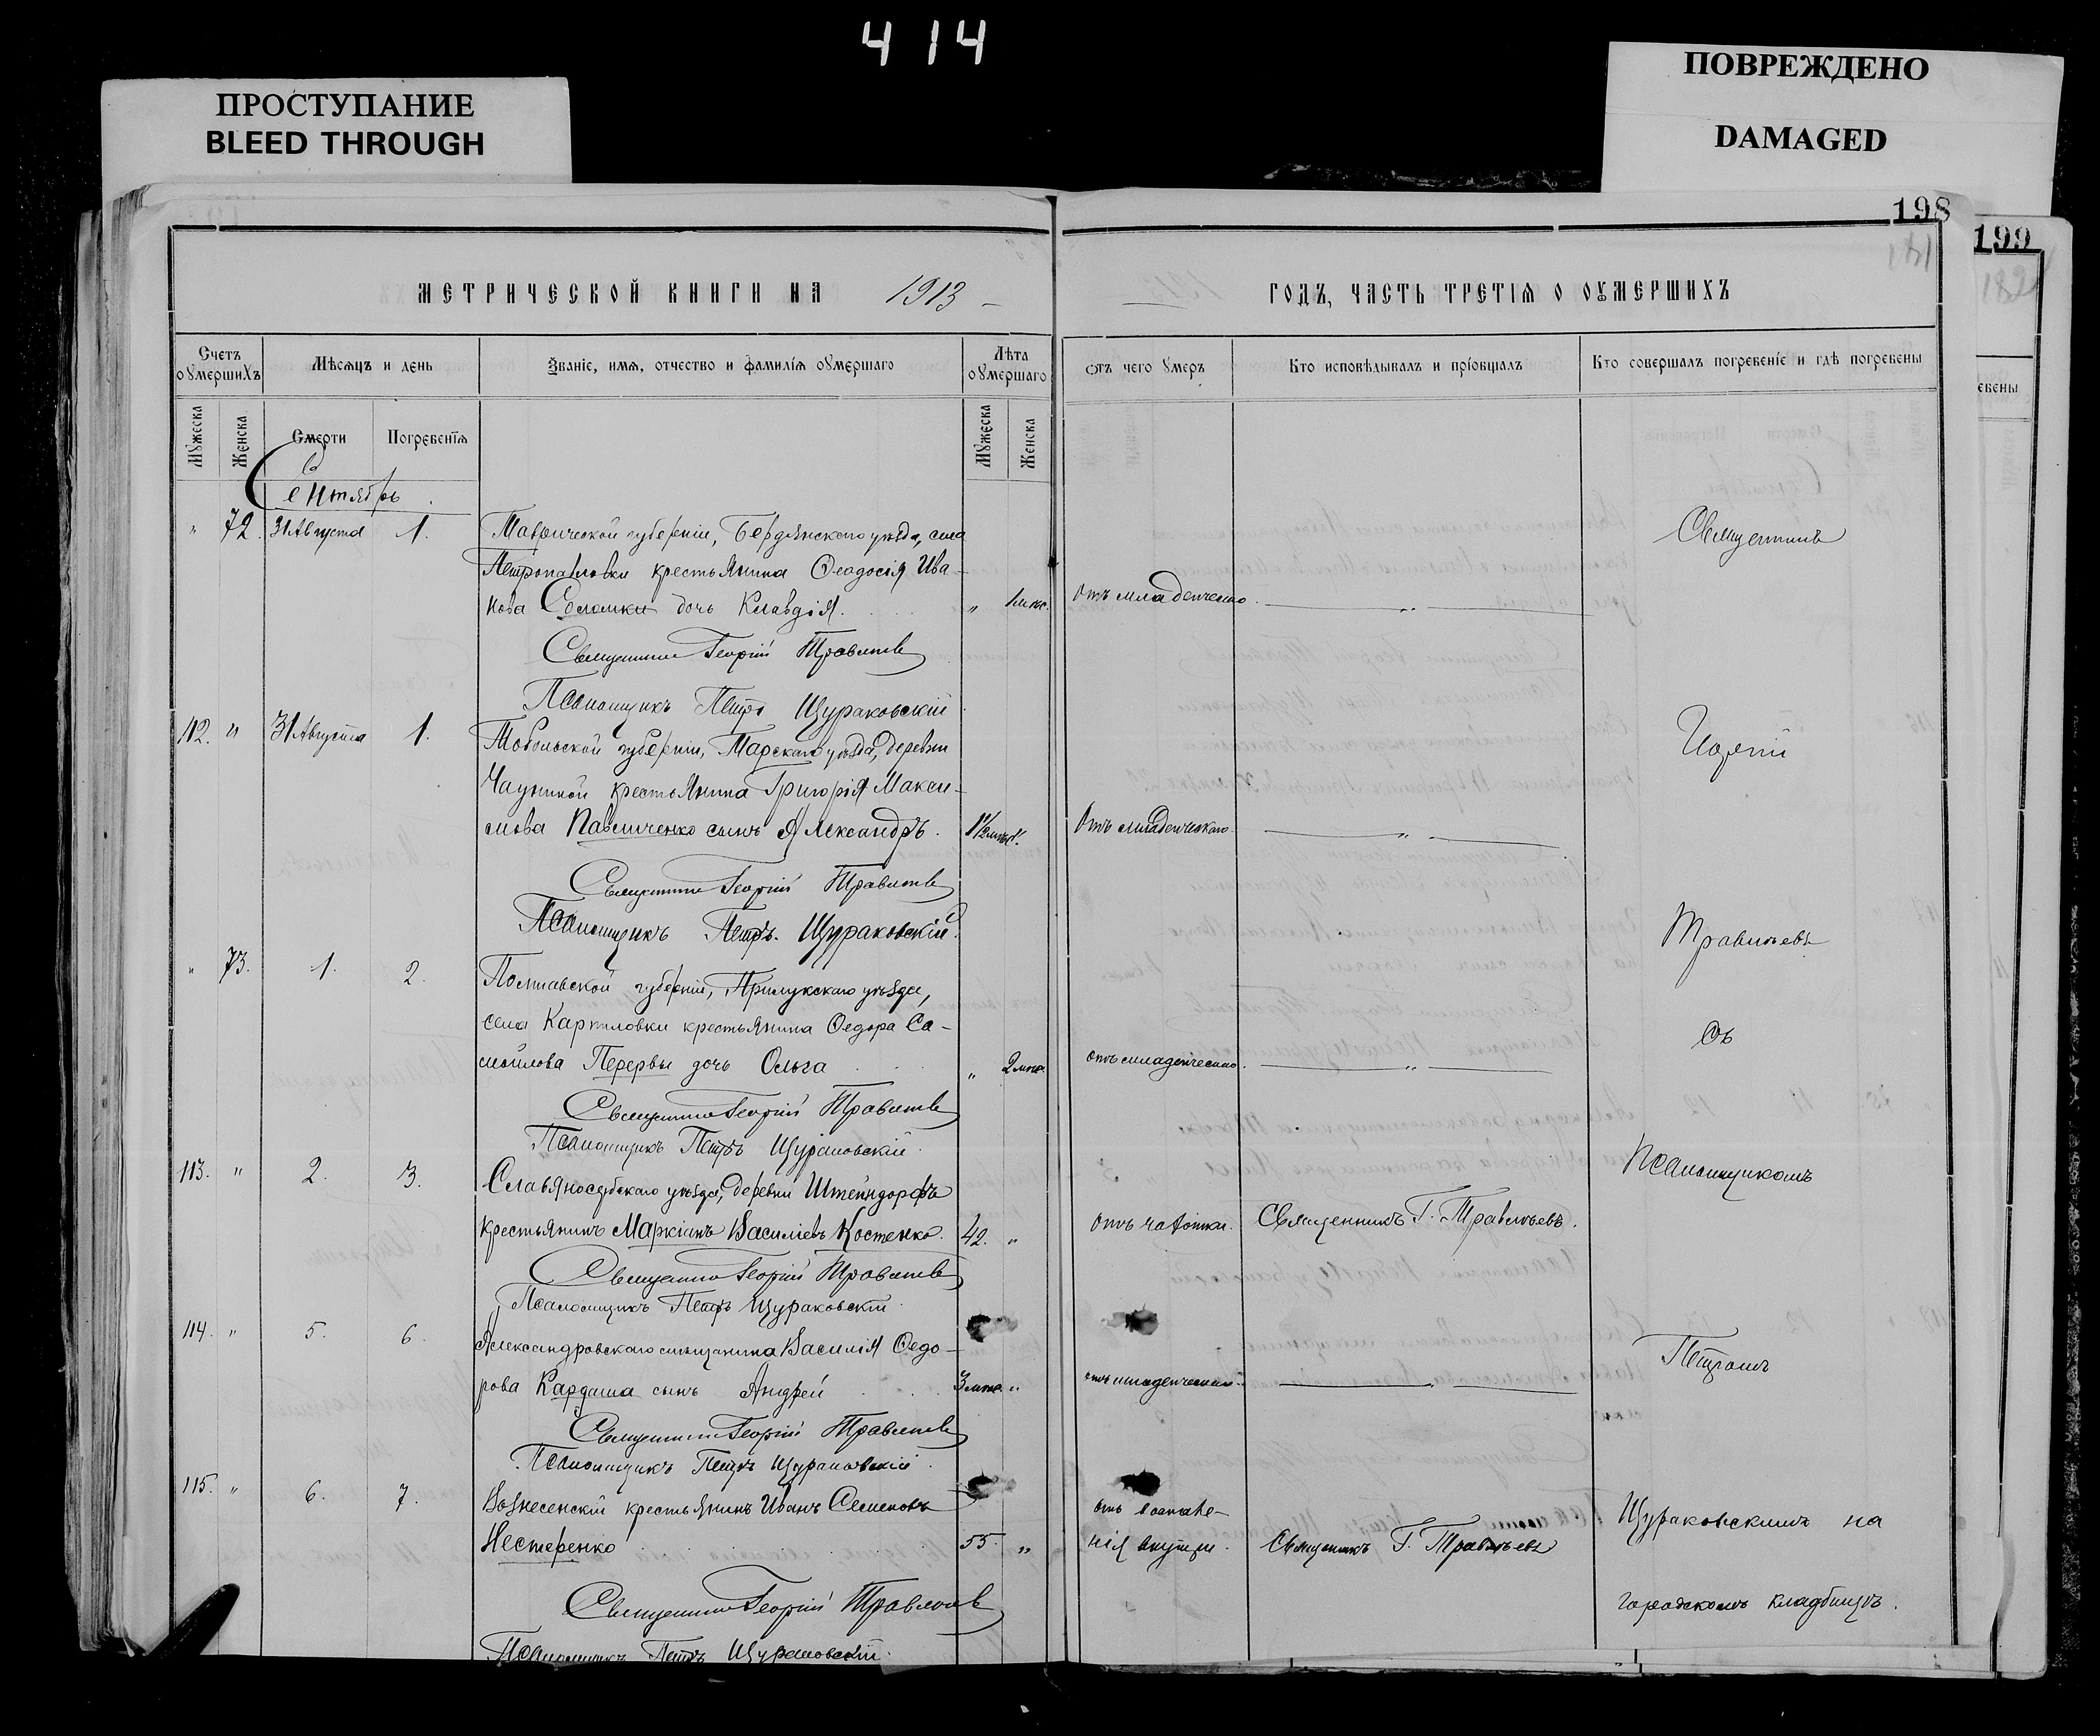 414
ПРОСТУПАНИЕ
BLEED THROUGH
ПОВРЕЖДЕНО
DAMAGED
198
199
МЕТРИЧЕСКОЙ КНИГИ НА 1913
ГОДЪ, ЧАСТЬ ТРЕТІЯ О ОУМЕРШИХЪ
Счетъ оумершихъ
Мѣсяцъ и день
Званіе, имя, отчество и фамилія оумершаго
Лѣта оумершаго
отъ чего умеръ
Кто исповѣдывалъ и пріобщалъ
Кто совершалъ погребеніе и гдѣ погребены
евены
Мужеска Женска Смерти Погребенія Мужеска Женска
Сентябрь.
" 72. 31 Августа 1. Таврической губерніи, Бердянскаго уѣзда, села
Петропавловки крестьянина Ѳеодосія Ива-
нова Соломки дочь Клавдія. " 1 мѣс. отъ младенческаго. "
Священникъ Георгій Травлѣевъ
Псаломщикъ Петръ Щураковскій
112. " 31 Августа 1. Тобольской губерніи, Тарскаго уѣзда, деревни
Чауниной крестьянина Григорія Макси-
мова Павличенко сынъ Александръ. 1½ мѣс. Отъ младенческаго. "
Священникъ Георгій Травлѣевъ
Псаломщикъ Петръ Щураковскій.
" 73. 1. 2. Полтавской губерніи, Прилукскаго уѣзда,
села Карпиловки крестьянина Ѳедора Са-
мойлова Перервы дочь Ольга " 2 мѣс. отъ младенческаго. "
Священникъ Георгій Травлѣевъ
Псаломщикъ Петръ Щураковскій.
113. " 2. 3. Славяносербскаго уѣзда, деревни Штейндорфъ
крестьянинъ Маркіанъ Василіевъ Костенко. 42. " отъ чахотки. Священникъ Г. Травлѣевъ.
Священникъ Георгій Травлѣевъ
Псаломщикъ Петръ Щураковскій.
114. " 5. 6. Александровскаго мѣщанина Василія Ѳедо-
рова Кардаша сынъ Андрей 3 мѣс. " отъ младенческаго. "
Священникъ Георгій Травлѣевъ
Псаломщикъ Петръ Щураковскій.
115. " 6. 7. Вознесенскій крестьянинъ Иванъ Семеновъ
Нестеренко 55. " Священникъ Г. Травлѣевъ
Священникъ Георгій Травлѣевъ
Псаломщикъ Петръ Щураковскій.
Священникъ
Травлѣевъ
съ
Псаломщикомъ
Петромъ
Щураковскимъ на
городскомъ кладбищѣ.